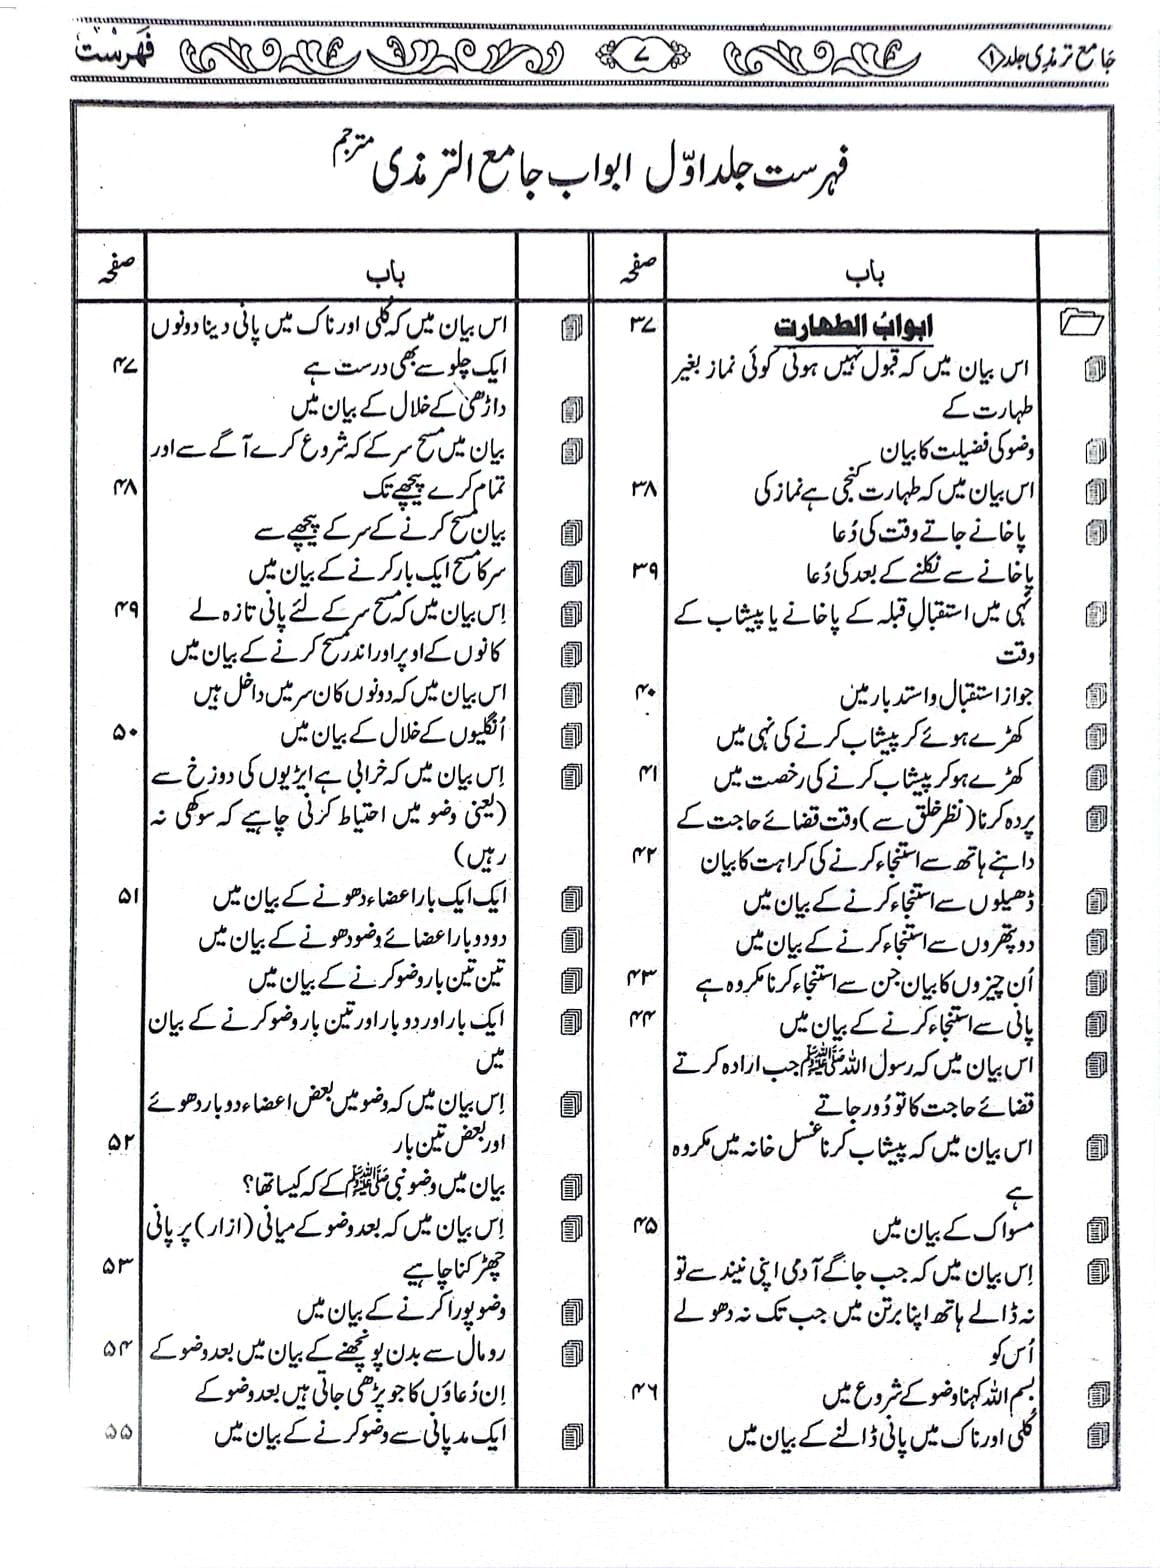 جامع ترمذی جلد ﴿۱﴾ ۷ فہرست
فہرست جلد اوّل ابواب جامع الترمذی مترجم
باب صفحہ
ابوابُ الطھارت ۳۷
اس بیان میں کہ قبول نہیں ہوتی کوئی نماز بغیر
طہارت کے
وضو کی فضیلت کا بیان
اس بیان میں کہ طہارت کنجی ہے نماز کی ۳۸
پاخانے جاتے وقت کی دُعا
پاخانے سے نکلنے کے بعد کی دُعا ۳۹
نہی میں استقبالِ قبلہ کے پاخانے یا پیشاب کے
وقت
جواز استقبال و استدبار میں ۴۰
کھڑے ہوئے کر پیشاب کرنے کی نہی میں
کھڑے ہو کر پیشاب کرنے کی رخصت میں ۴۱
پردہ کرنا (نظر خلق سے) وقت قضائے حاجت کے
داہنے ہاتھ سے استنجاء کرنے کی کراہت کا بیان ۴۲
ڈھیلوں سے استنجاء کرنے کے بیان میں
دو پتھروں سے استنجاء کرنے کے بیان میں
اُن چیزوں کا بیان جن سے استنجاء کرنا مکروہ ہے ۴۳
پانی سے استنجاء کرنے کے بیان میں ۴۴
اس بیان میں کہ رسول اللہ ﷺ جب ارادہ کرتے
قضائے حاجت کا تو دُور جاتے
اس بیان میں کہ پیشاب کرنا غسل خانہ میں مکروہ
ہے
مسواک کے بیان میں ۴۵
اِس بیان میں کہ جب جاگے آدمی اپنی نیند سے تو
نہ ڈالے ہاتھ اپنا برتن میں جب تک نہ دھولے
اُس کو
بسم اللہ کہنا وضو کے شروع میں ۴۶
کُلی اور ناک میں پانی ڈالنے کے بیان میں
باب صفحہ
اس بیان میں کہ کُلی اور ناک میں پانی دینا دونوں
ایک چلو سے بھی درست ہے ۴۷
داڑھی کے خلال کے بیان میں
بیان میں مسح سر کے کہ شروع کرے آگے سے اور
تمام کرے پیچھے تک ۴۸
بیان مسح کرنے کے سر کے پیچھے سے
سر کا مسح ایک بار کرنے کے بیان میں
اِس بیان میں کہ مسح سر کے لئے پانی تازہ لے ۴۹
کانوں کے اوپر اور اندر مسح کرنے کے بیان میں
اس بیان میں کہ دونوں کان سر میں داخل ہیں
اُنگلیوں کے خلال کے بیان میں ۵۰
اِس بیان میں کہ خرابی ہے ایڑیوں کی دوزخ سے
(یعنی وضو میں احتیاط کرنی چاہیے کہ سوکھی نہ
رہیں)
ایک ایک بار اعضاء دھونے کے بیان میں ۵۱
دو دو بار اعضائے وضو دھونے کے بیان میں
تین تین بار وضو کرنے کے بیان میں
ایک بار اور دو بار اور تین بار وضو کرنے کے بیان
میں
اِس بیان میں کہ وضو میں بعض اعضاء دو بار دھوئے
اور بعض تین بار ۵۲
بیان میں وضو نبی ﷺ کے کہ کیسا تھا؟
اِس بیان میں کہ بعد وضو کے میانی (ازار) پر پانی
چھڑکنا چاہیے ۵۳
وضو پورا کرنے کے بیان میں
رومال سے بدن پونچھنے کے بیان میں بعد وضو کے ۵۴
اِن دُعاؤں کا جو پڑھی جاتی ہیں بعد وضو کے
ایک مد پانی سے وضو کرنے کے بیان میں ۵۵